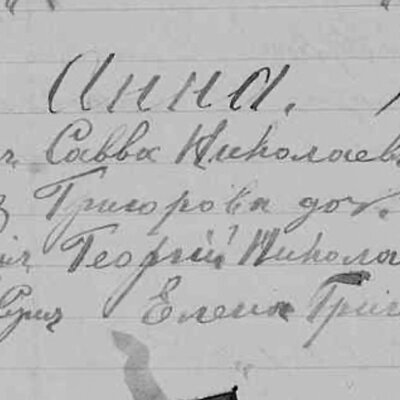 Анна.
Савва Николаев
Григорова доч.
Георгій Никола
Елена Григ